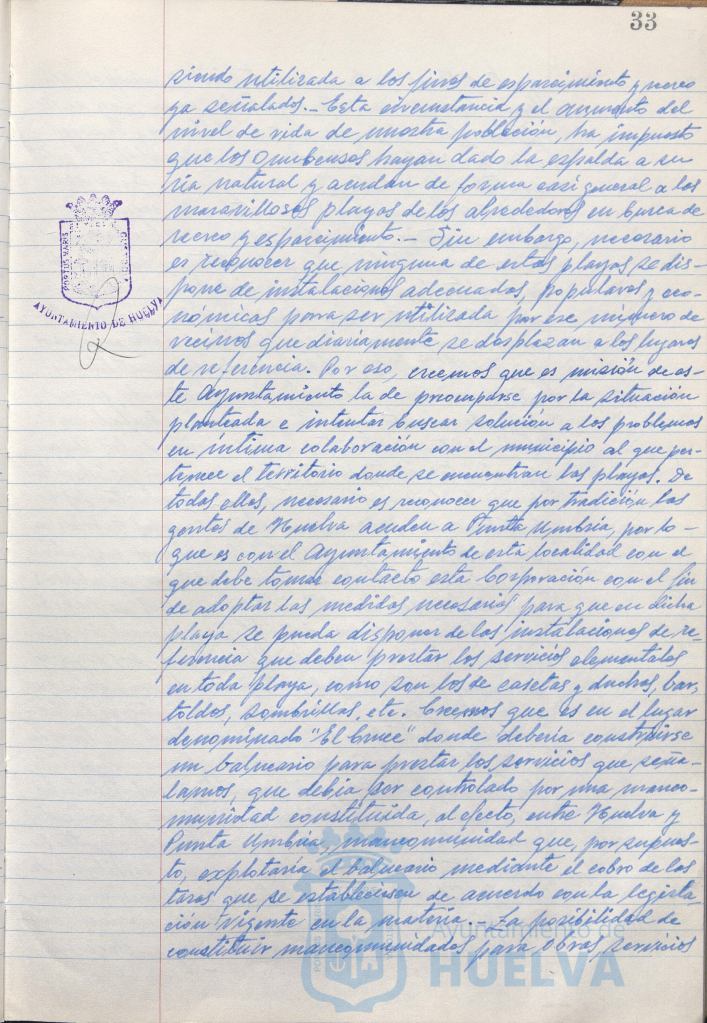 33
siendo utilizada a los fines de esparcimiento y recreo
ya señalados.- Esta circunstancia y el aumento del
nivel de vida de nuestra población, ha impuesto
que los Onubenses hayan dado la espalda a su
ría natural y acudan de forma casi general a las
maravillosas playas de los alrededores en busca de
recreo y esparcimiento.- Sin embargo, necesario
es reconocer que ninguna de estas playas se dis-
pone de instalaciones adecuadas, populares y eco-
nómicas para ser utilizada por ese número de
vecinos que diariamente se desplazan a los lugares
de referencia. Por eso, creemos que es misión de es-
te Ayuntamiento la de preocuparse por la situación
planteada e intentar buscar solución a los problemas
en íntima colaboración con el municipio al que per-
tenece el territorio donde se encuentran las playas. De
todas ellas, necesario es reconocer que por tradición las
gentes de Huelva acuden a Punta Umbría, por lo-
que es con el Ayuntamiento de esta localidad con el
que debe tomar contacto esta Corporación con el fin
de adoptar las medidas necesarias para que en dicha
playa se pueda disponer de las instalaciones de re-
ferencia que deben prestar los servicios elementales
en toda playa, como son los de casetas y duchas, bar,
toldos, sombrillas, etc. Creemos que es en el lugar
denominado "El Cruce" donde debería construirse
un balneario para prestar los servicios que seña-
lamos, que debía ser controlado por una manco-
munidad constituída, al efecto, entre Huelva y
Punta Umbría, mancomunidad que, por supues-
to, explotaría el balneario mediante el cobro de las
tasas que se estableciesen de acuerdo con la legisla-
ción vigente en la materia.- La posibilidad de
constituir mancomunidades para obras, servicios
PORTUS MARIS
AYUNTAMIENTO DE HUELVA
Ayuntamiento de
HUELVA